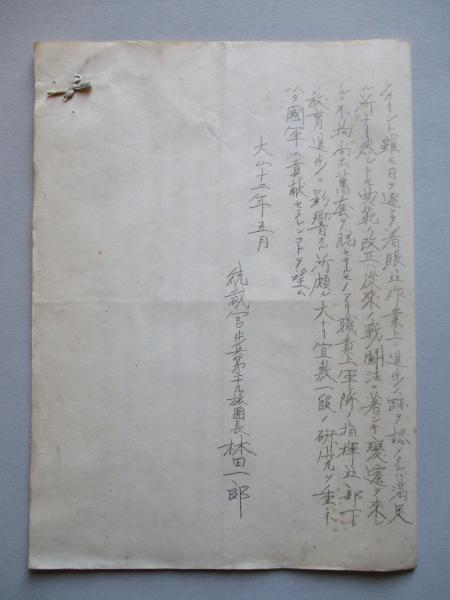 シタリト雖モ日ヲ逐テ着眼並作業上ニ進歩ノ跡ヲ認メタルハ満足
ル所ナリ然レトモ典範ノ改正ハ従来ノ戦闘法ニ著シキ変遷ヲ来シ
ルニ不拘尚ホ舊套ヲ脱セサルモノアリ職責上軍隊ノ指揮並部下
教育進歩ニ影響スル所頗ル大ナリ宜敷一段ノ研究ヲ重ネ
以テ國軍ニ貢献セラレンコトヲ望ム
大正十二年五月
統裁官歩兵第二十九旅團長 林田一郎